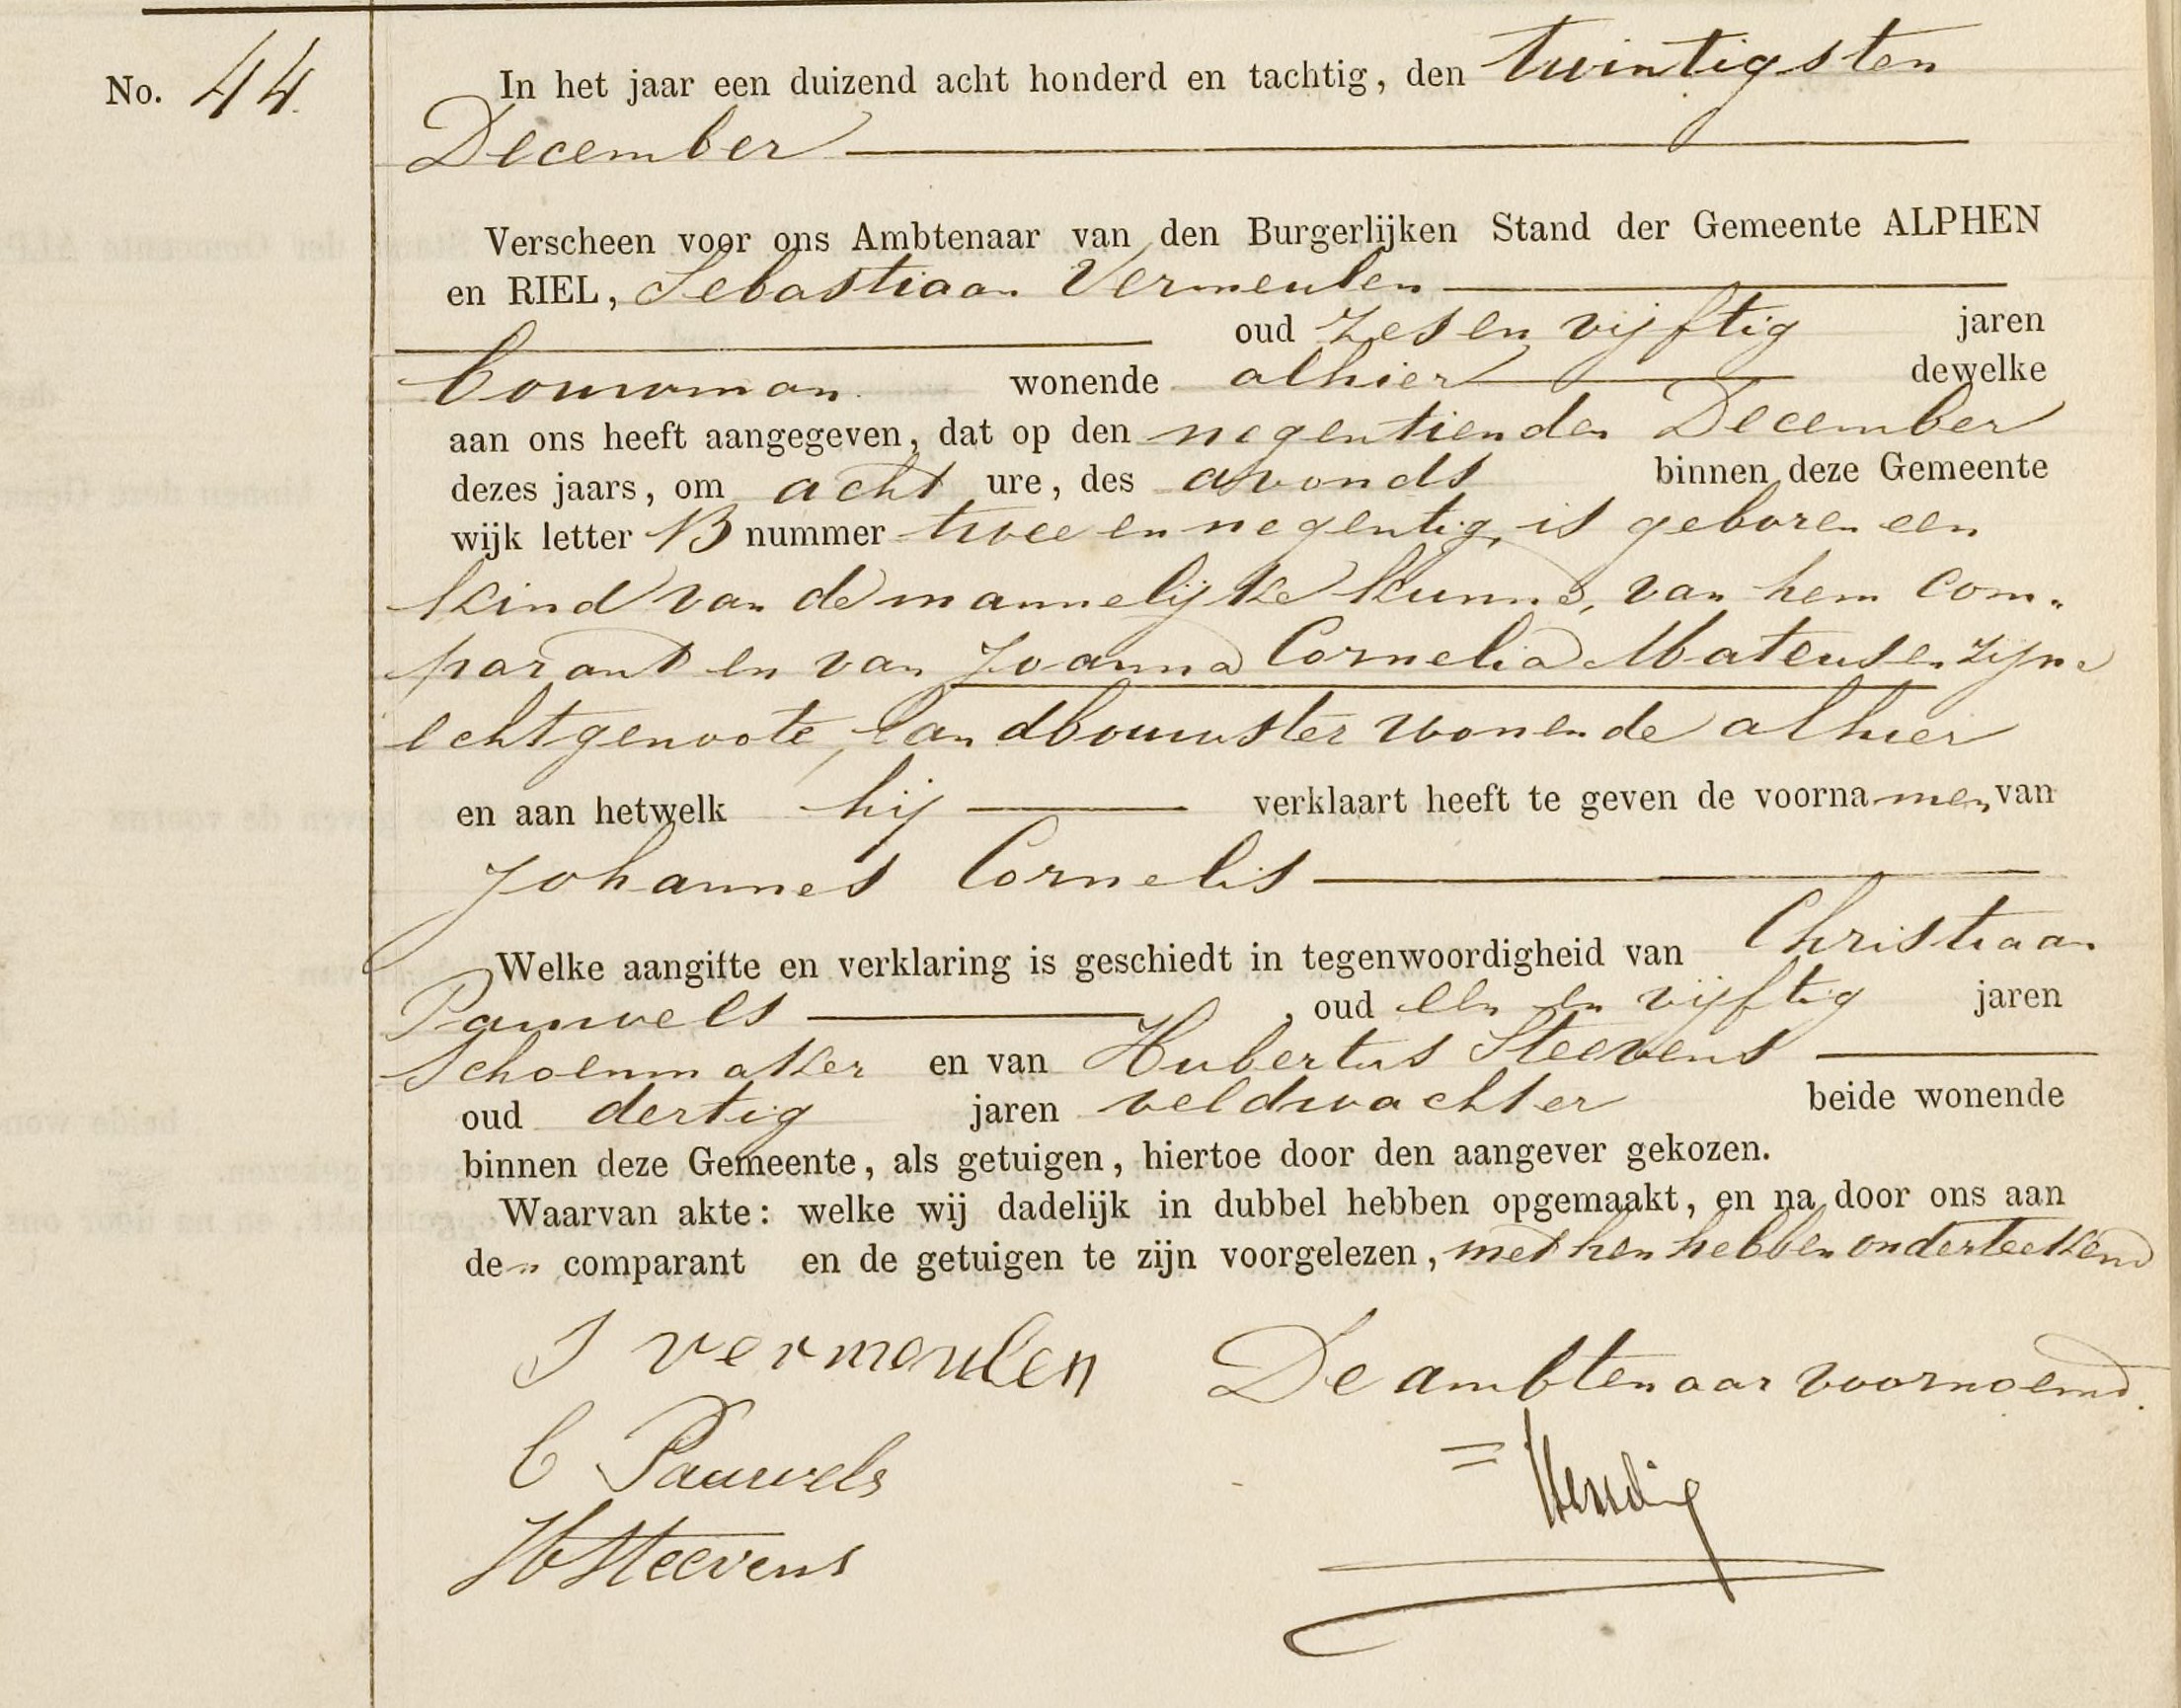 No. 44.
In het jaar een duizend acht honderd en tachtig, den twintigsten
December
Verscheen voor ons Ambtenaar van den Burgerlijken Stand der Gemeente ALPHEN
en RIEL, Sebastiaan Vermeulen
oud zes en vijftig jaren
bouwman wonende alhier dewelke
aan ons heeft aangegeven, dat op den negentienden December
dezes jaars, om acht ure, des avonds binnen deze Gemeente
wijk letter B nummer twee en negentig, is geboren een
kind van de mannelijke kunne, van hem com„
parant en van Joanna Cornelia Mateusen zijne
echtgenoote, landbouwster wonende alhier
en aan hetwelk hij verklaart heeft te geven de voornamen van
Johannes Cornelis
Welke aangifte en verklaring is geschiedt in tegenwoordigheid van Christiaan
Pauwels, oud een en vijftig jaren
schoenmaker en van Hubertus Steevens
oud dertig jaren veldwachter beide wonende
binnen deze Gemeente, als getuigen, hiertoe door den aangever gekozen.
Waarvan akte: welke wij dadelijk in dubbel hebben opgemaakt, en na door ons aan
den comparant en de getuigen te zijn voorgelezen, met hen hebben onderteekend
S vermeulen De ambtenaar voornoemd.
C Pauwels
H Steevens